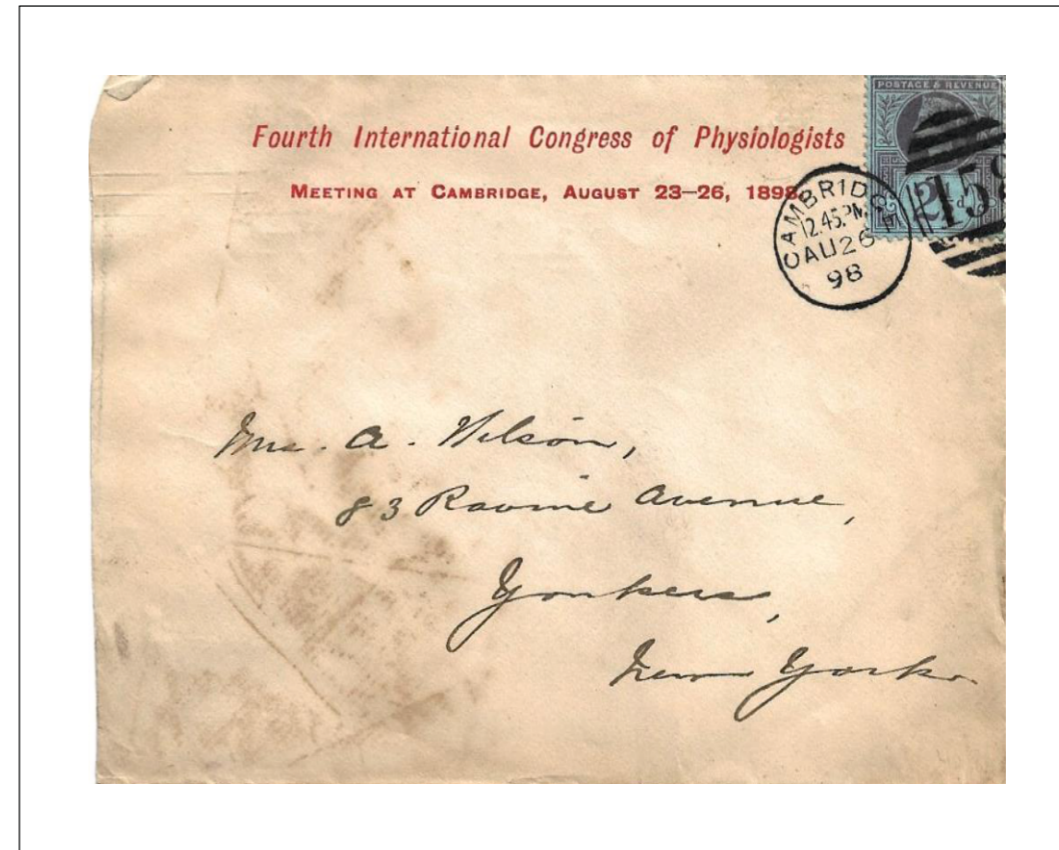 Fourth International Congress of Physiologists
MEETING AT CAMBRIDGE, AUGUST 23–26, 1898.
POSTAGE & REVENUE
CAMBRIDGE
12.45.PM
AU 26
98
2½d
158
Mrs. A. Wilson,
83 Ravine Avenue,
Yonkers,
New York.